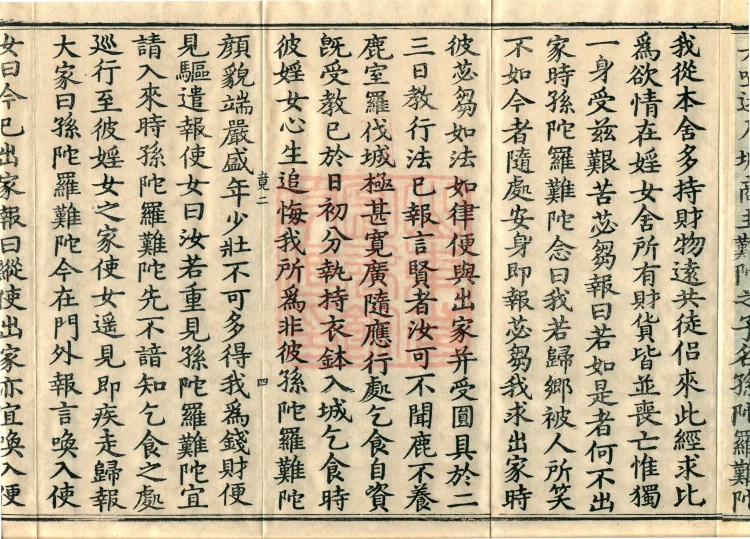 難陀名孫陀羅難陀
我從本舍多持財物遠共徒侶來此經求比
爲欲情在婬女舍所有財貨皆並喪亡惟獨
一身受兹艱苦苾芻報曰若如是者何不出
家時孫陀羅難陀念曰我若歸鄉被人所笑
不如今者隨處安身即報苾芻我求出家時
彼苾芻如法如律便與出家并受圓具於二
三日教行法已報言賢者汝可不聞鹿不養
鹿室羅伐城極甚寬廣隨應行處乞食自資
旣受教已於日初分執持衣鉢入城乞食時
彼婬女心生追悔我所爲非彼孫陀羅難陀
竟二 四
顏貌端嚴盛年少壯不可多得我爲錢財便
見驅遣報使女曰汝若重見孫陀羅難陀宜
請入來時孫陀羅難陀先不諳知乞食之處
巡行至彼婬女之家使女遥見即疾走歸報
大家曰孫陀羅難陀今在門外報言喚入使
女曰今已出家報曰縱使出家亦宜喚入便